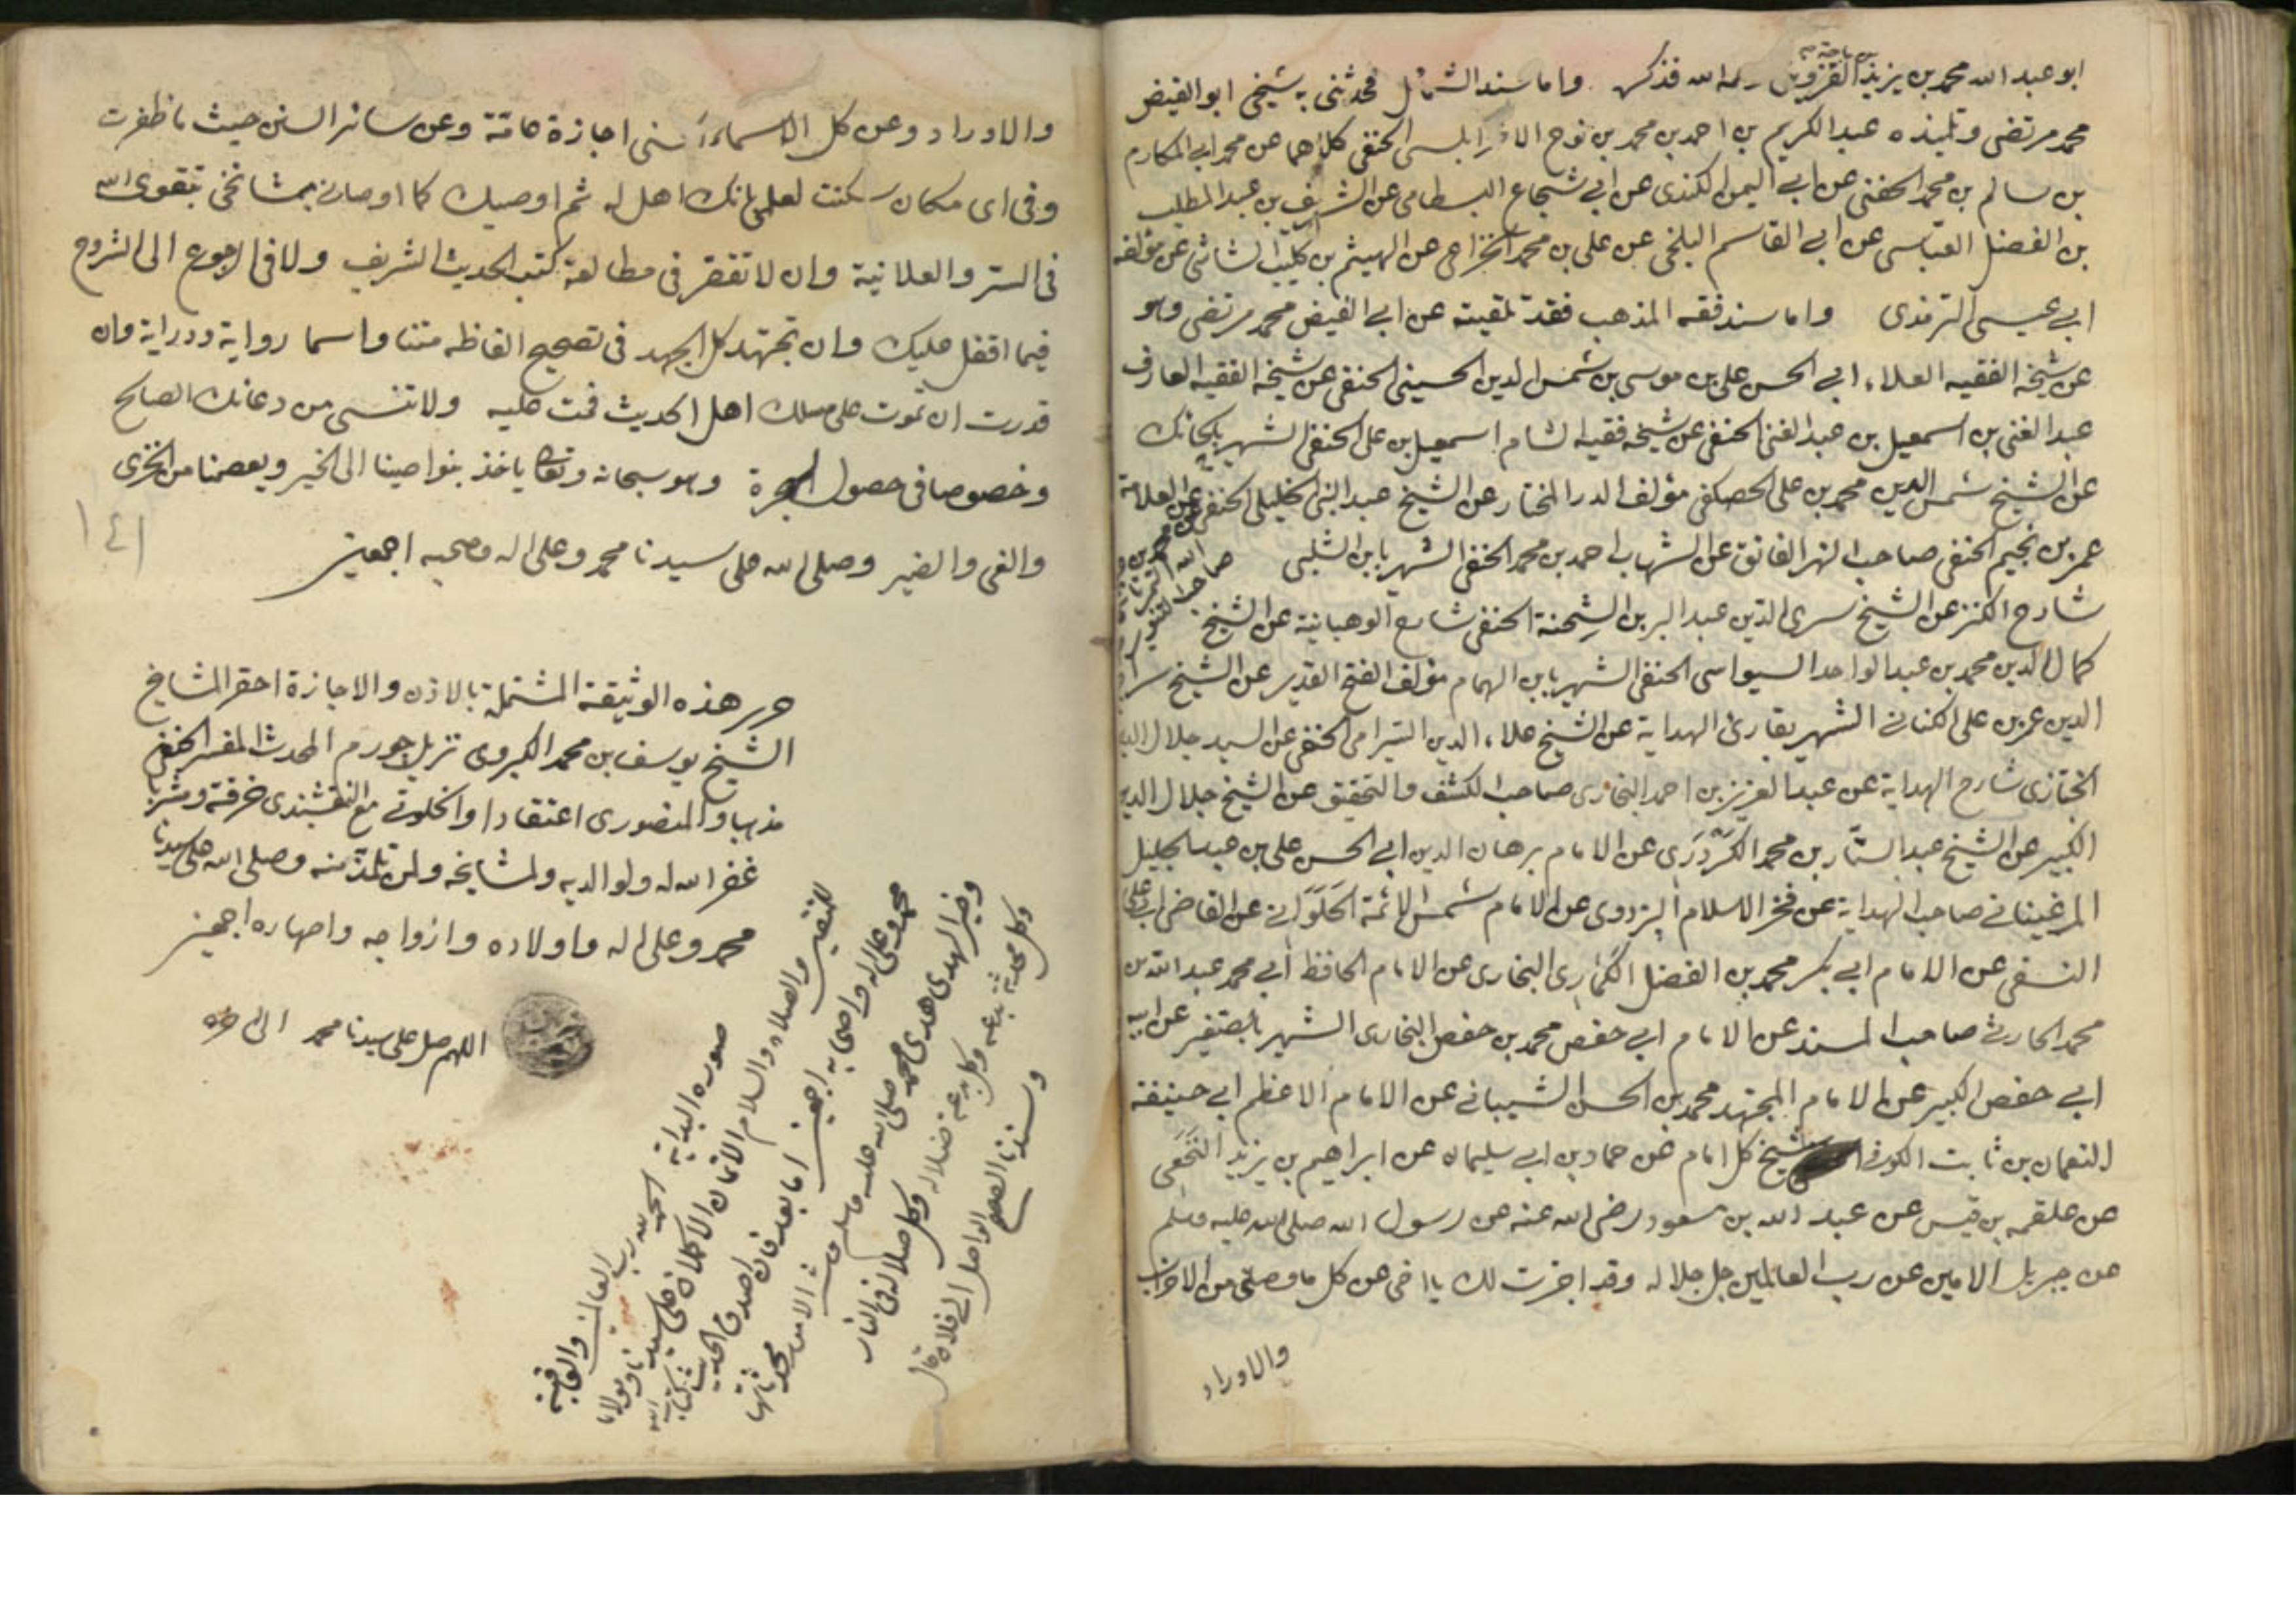 ابو عبد الله محمد بن يزيد بن ماجة القزوينى رحمه الله فذكره واما سند الشمائل فحدثنى به شيخى ابو الفيض
محمد مرتضى وتلميذه عبد الكريم بن احمد بن محمد بن نوح الاطرابلسى الحنفى كلاهما عن محمد ابى المكارم
بن سالم بن محمد الحفنى عن ابى اليمن الكندى عن ابى شجاع البسطامى عن الشريف بن عبد المطلب
بن الفضل العباسى عن ابى القاسم البلخى عن على بن محمد الخزاعى عن الهيثم بن كليب الشاشى عن مؤلفه
ابى عيسى الترمذى واما سند فقه المذهب فقد تلقيته عن ابى الفيض محمد مرتضى وهو
عن شيخه الفقيه العلاء ابى الحسن على بن موسى بن شمس الدين الحسينى الحنفى عن شيخه الفقيه العارف
عبد الغنى بن اسمعيل بن عبد الغنى الحنفى عن شيخه فقيه الشام اسمعيل بن على الحنفى الشهير بالحائك
عن الشيخ شمس الدين محمد بن على الحصكفى مؤلف الدر المختار عن الشيخ عبد النبى الخليلى الحنفى عن العلامة
عمر بن نجيم الحنفى صاحب النهر الفائق عن الشهاب احمد بن محمد الحنفى الشهير بابن الشلبى
صاحب التنوير
شارح الكنز عن الشيخ سرى الدين عبد البر بن الشحنة الحنفى شارح الوهبانية عن الشيخ
كمال الدين محمد بن عبد الواحد السيواسى الحنفى الشهير بابن الهمام مؤلف الفتح القدير عن الشيخ سراج
الدين عمر بن على الكنانى الشهير بقارئ الهداية عن الشيخ علاء الدين السيرامى الحنفى عن السيد جلال الدين
الخبازى شارح الهداية عن عبد العزيز بن احمد البخارى صاحب الكشف والتحقيق عن الشيخ جلال الدين
الكبير عن الشيخ عبد الستار بن محمد الكردرى عن الامام برهان الدين ابى الحسن على بن عبد الجليل
المرغينانى صاحب الهداية عن فخر الاسلام البزدوى عن الامام شمس الائمة الحلوانى عن القاضى ابى على
النسفى عن الامام ابى بكر محمد بن الفضل الكمارى البخارى عن الامام الحافظ ابى محمد عبد الله بن
محمد الحارثى صاحب المسند عن الامام ابى حفص محمد بن حفص البخارى الشهير بالصغير عن ابيه
ابى حفص الكبير عن الامام المجتهد محمد بن الحسن الشيبانى عن الامام الاعظم ابى حنيفة
النعمان بن ثابت الكوفى شيخ كل امام عن حماد بن ابى سليمان عن ابراهيم بن يزيد النخعى
عن علقمه بن قيس عن عبد الله بن مسعود رضى الله عنه عن رسول الله صلى الله عليه وسلم
عن جبريل الامين عن رب العالمين جل جلاله وقد اجزت لك يا اخى عن كل ما وصلنى من الاحزاب
والاوراد
والاوراد وعن كل الاسماء الحسنى اجازة عامة وعن سائر السنن حيث ما ظفرت
وفى اى مكان سكنت لعلمى بانك اهل له ثم اوصيك كما اوصانى مشائخى بتقوى الله
فى السر والعلانية وان لا تفتقر فى مطالعة كتب الحديث الشريف ولا فى الرجوع الى الشروح
فيما اقفل عليك وان تجتهد كل الجهد فى تصحيح الفاظه متنا واسما رواية ودراية وان
قدرت ان تموت على مسلك اهل الحديث فمت عليه ولا تنسى من دعائك الصالح
وخصوصا فى حصول الهجرة وهو سبحانه وتعالى ياخذ بنواصينا الى الخير ويعصمنا من الخزى
والغى والضير وصلى الله على سيدنا محمد وعلى اله وصحبه اجمعين
١٤١
حرر هذه الوثيقة المشتملة بالاذن والاجازة احقر المشايخ
الشيخ يوسف بن محمد الكبروى نزيل جورم المحدث المفسر الحنفى
مذهبا والمنصورى اعتقادا والخلوتى مع النقشبندى خرقة ومشربا
غفر الله له ولوالديه ولمشايخه ولمن تلمذ منه وصلى الله على سيدنا
محمد وعلى اله واولاده وازواجه واصهاره اجمعين
اللهم صل على سيدنا محمد الى اخره
صوره البداية الحمد لله رب العالمين والعاقبة
للمتقين والصلاه والسلام الاتمان الاكملان على سيدنا ومولانا
محمد وعلى اله واصحابه اجمعين اما بعد فان اصدق الحديث كتاب الله
وخير الهدى هدى محمد صلى الله عليه وسلم وشر الامور محدثاتها
وكل محدثة بدعه وكل بدعة ضلاله وكل ضلالة فى النار
وسندنا الصحيح الواصل الى فلان قال